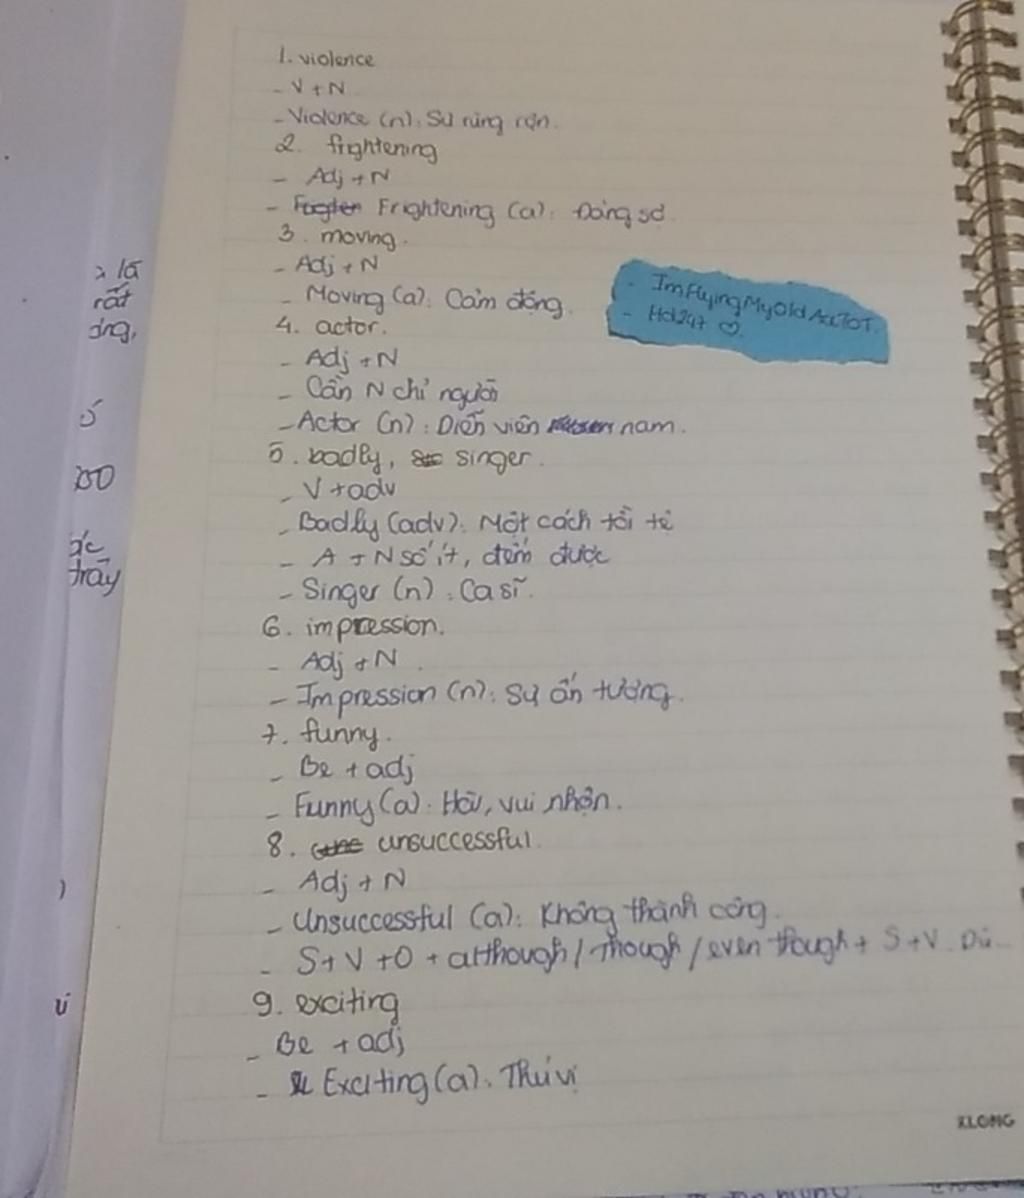 1. violence
- V + N
- Violence (n): Sự rùng rợn.
2. frightening
- Adj + N
- Frightening (a): Đáng sợ.
3. moving.
- Adj + N
- Moving (a): Cảm động.
- ImFlyingMyOldAccTOT.
- Hd247 ♡.
4. actor.
- Adj + N
- Cần N chỉ người
- Actor (n): Diễn viên nam.
5. badly, singer.
- V + adv
- Badly (adv): Một cách tồi tệ
- A + N số ít, đếm được
- Singer (n): Ca sĩ.
6. impression.
- Adj + N.
- Impression (n): Sự ấn tượng.
7. funny.
- Be + adj
- Funny (a): Hài, vui nhộn.
8. unsuccessful.
- Adj + N
- Unsuccessful (a): Không thành công.
- S + V + O + although / though / even though + S + V. Dù...
9. exciting
- Be + adj
- Exciting (a): Thú vị
KLONG
là
rất
ứng,
ố
trây